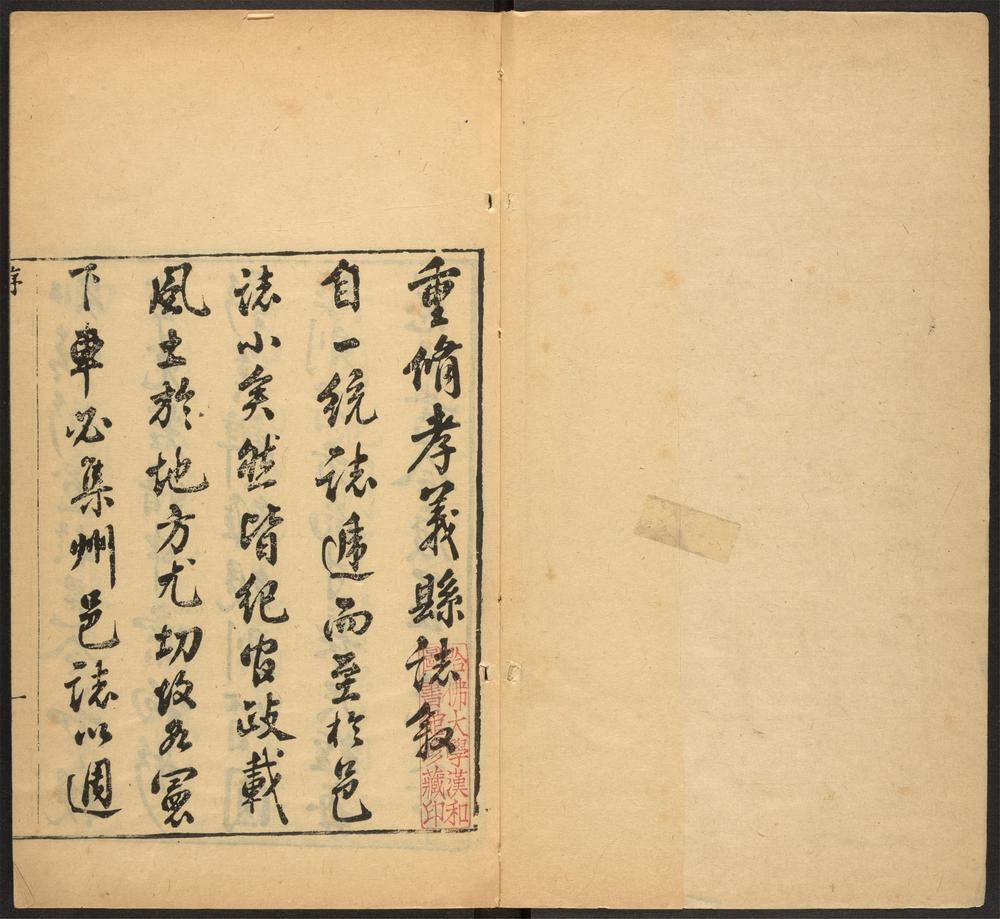 重脩孝義縣誌敘
自一統誌遞而至於邑
誌小矣然皆紀官政載
風土於地方尤切故各憲
下車必集州邑誌以週
序
一
哈佛大學漢和
圖書館珍藏印